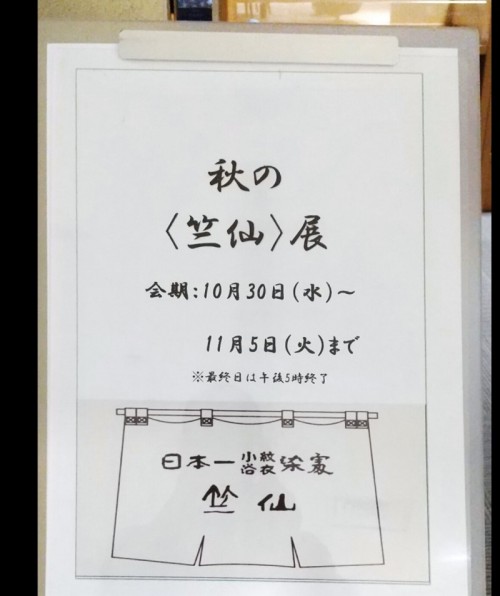 秋の
〈竺仙〉展
会期:10月30日(水)～
11月5日(火)まで
※最終日は午後5時終了
日本一小紋浴衣染家
竺仙